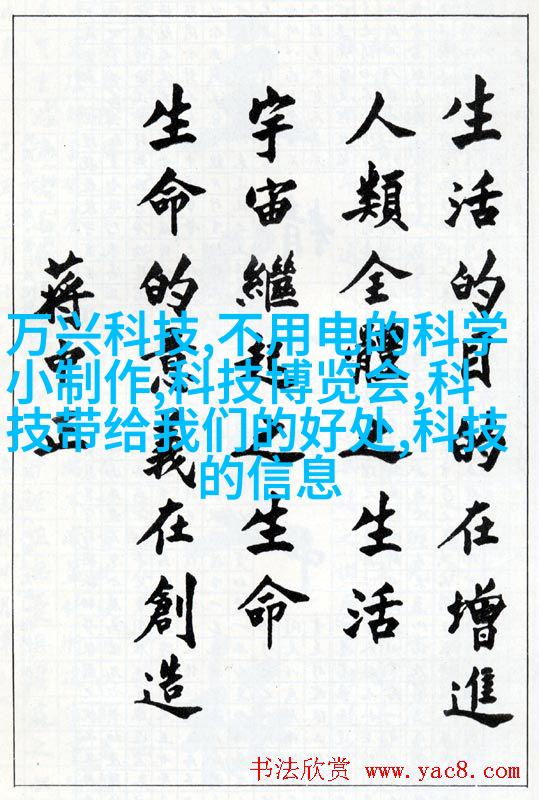 生活的目的在增進
人類全體之生活
宇宙繼起之生命
生命的意義在創造
蔣中正
万兴科技,不用电的科学
小制作,科技博览会,科
技带给我们的好处,科技
的信息
书法欣赏 www.yac8.com